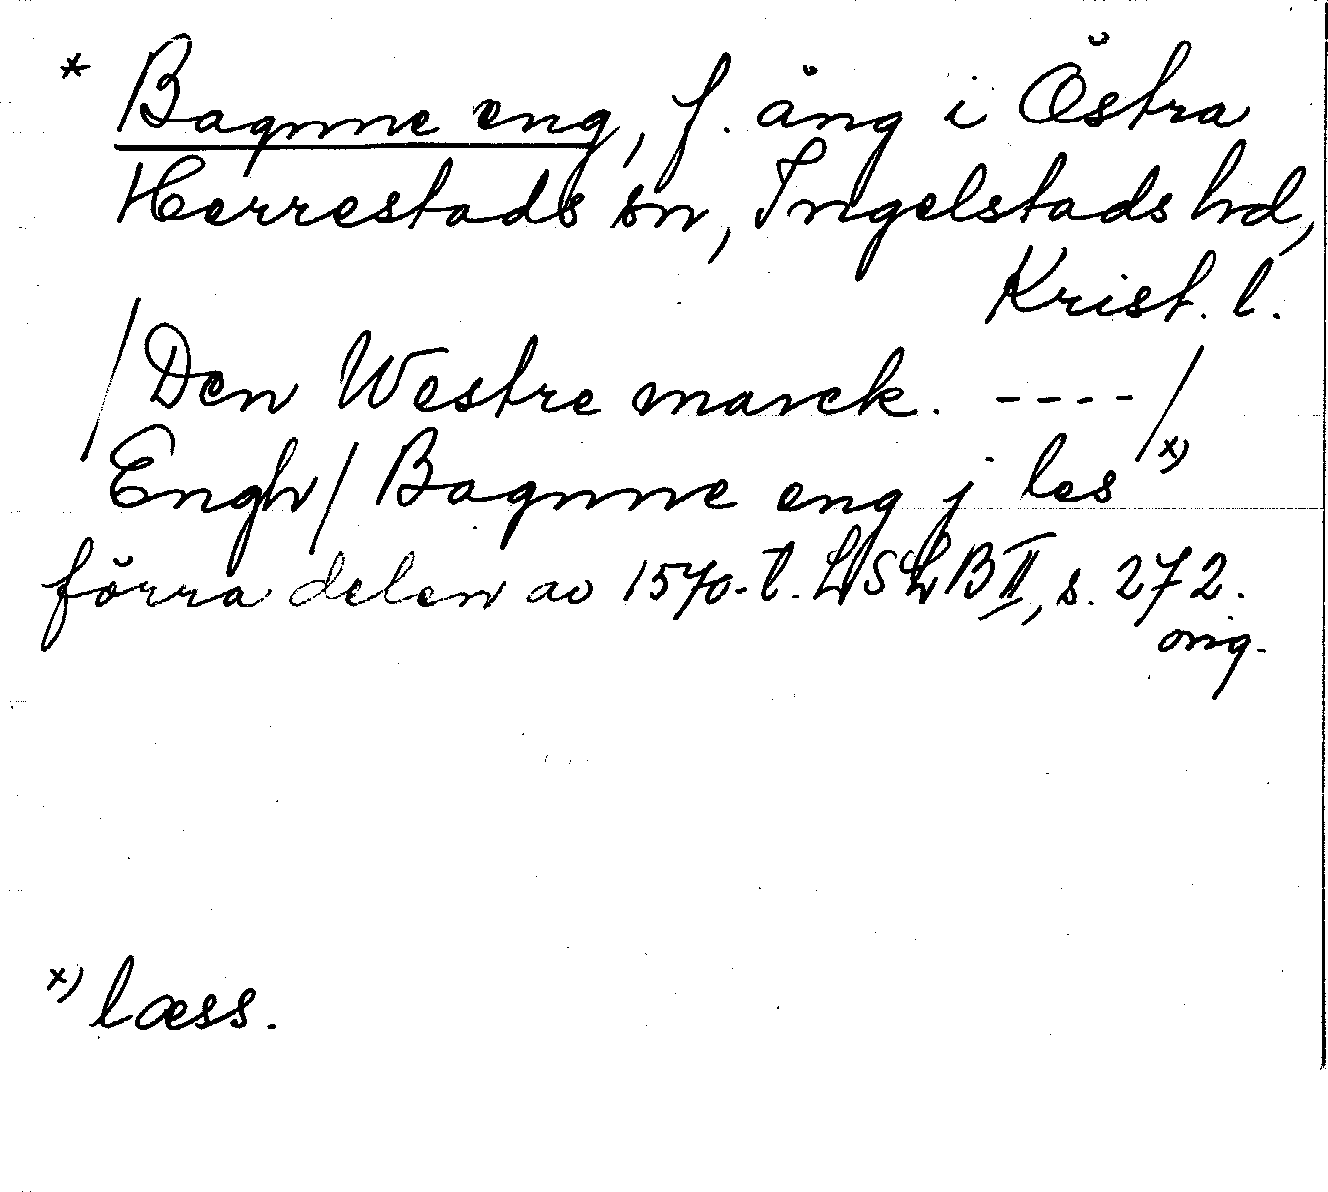 * Bagnne eng, f. äng i Östra
Herrestads sn, Ingelstads hd,
Krist. l.
/Den Westre marck. ----/
Engh/ Bagnne eng j les x)
förra delen av 1570-t. LSLB II, s. 272.
orig.
x) læss.